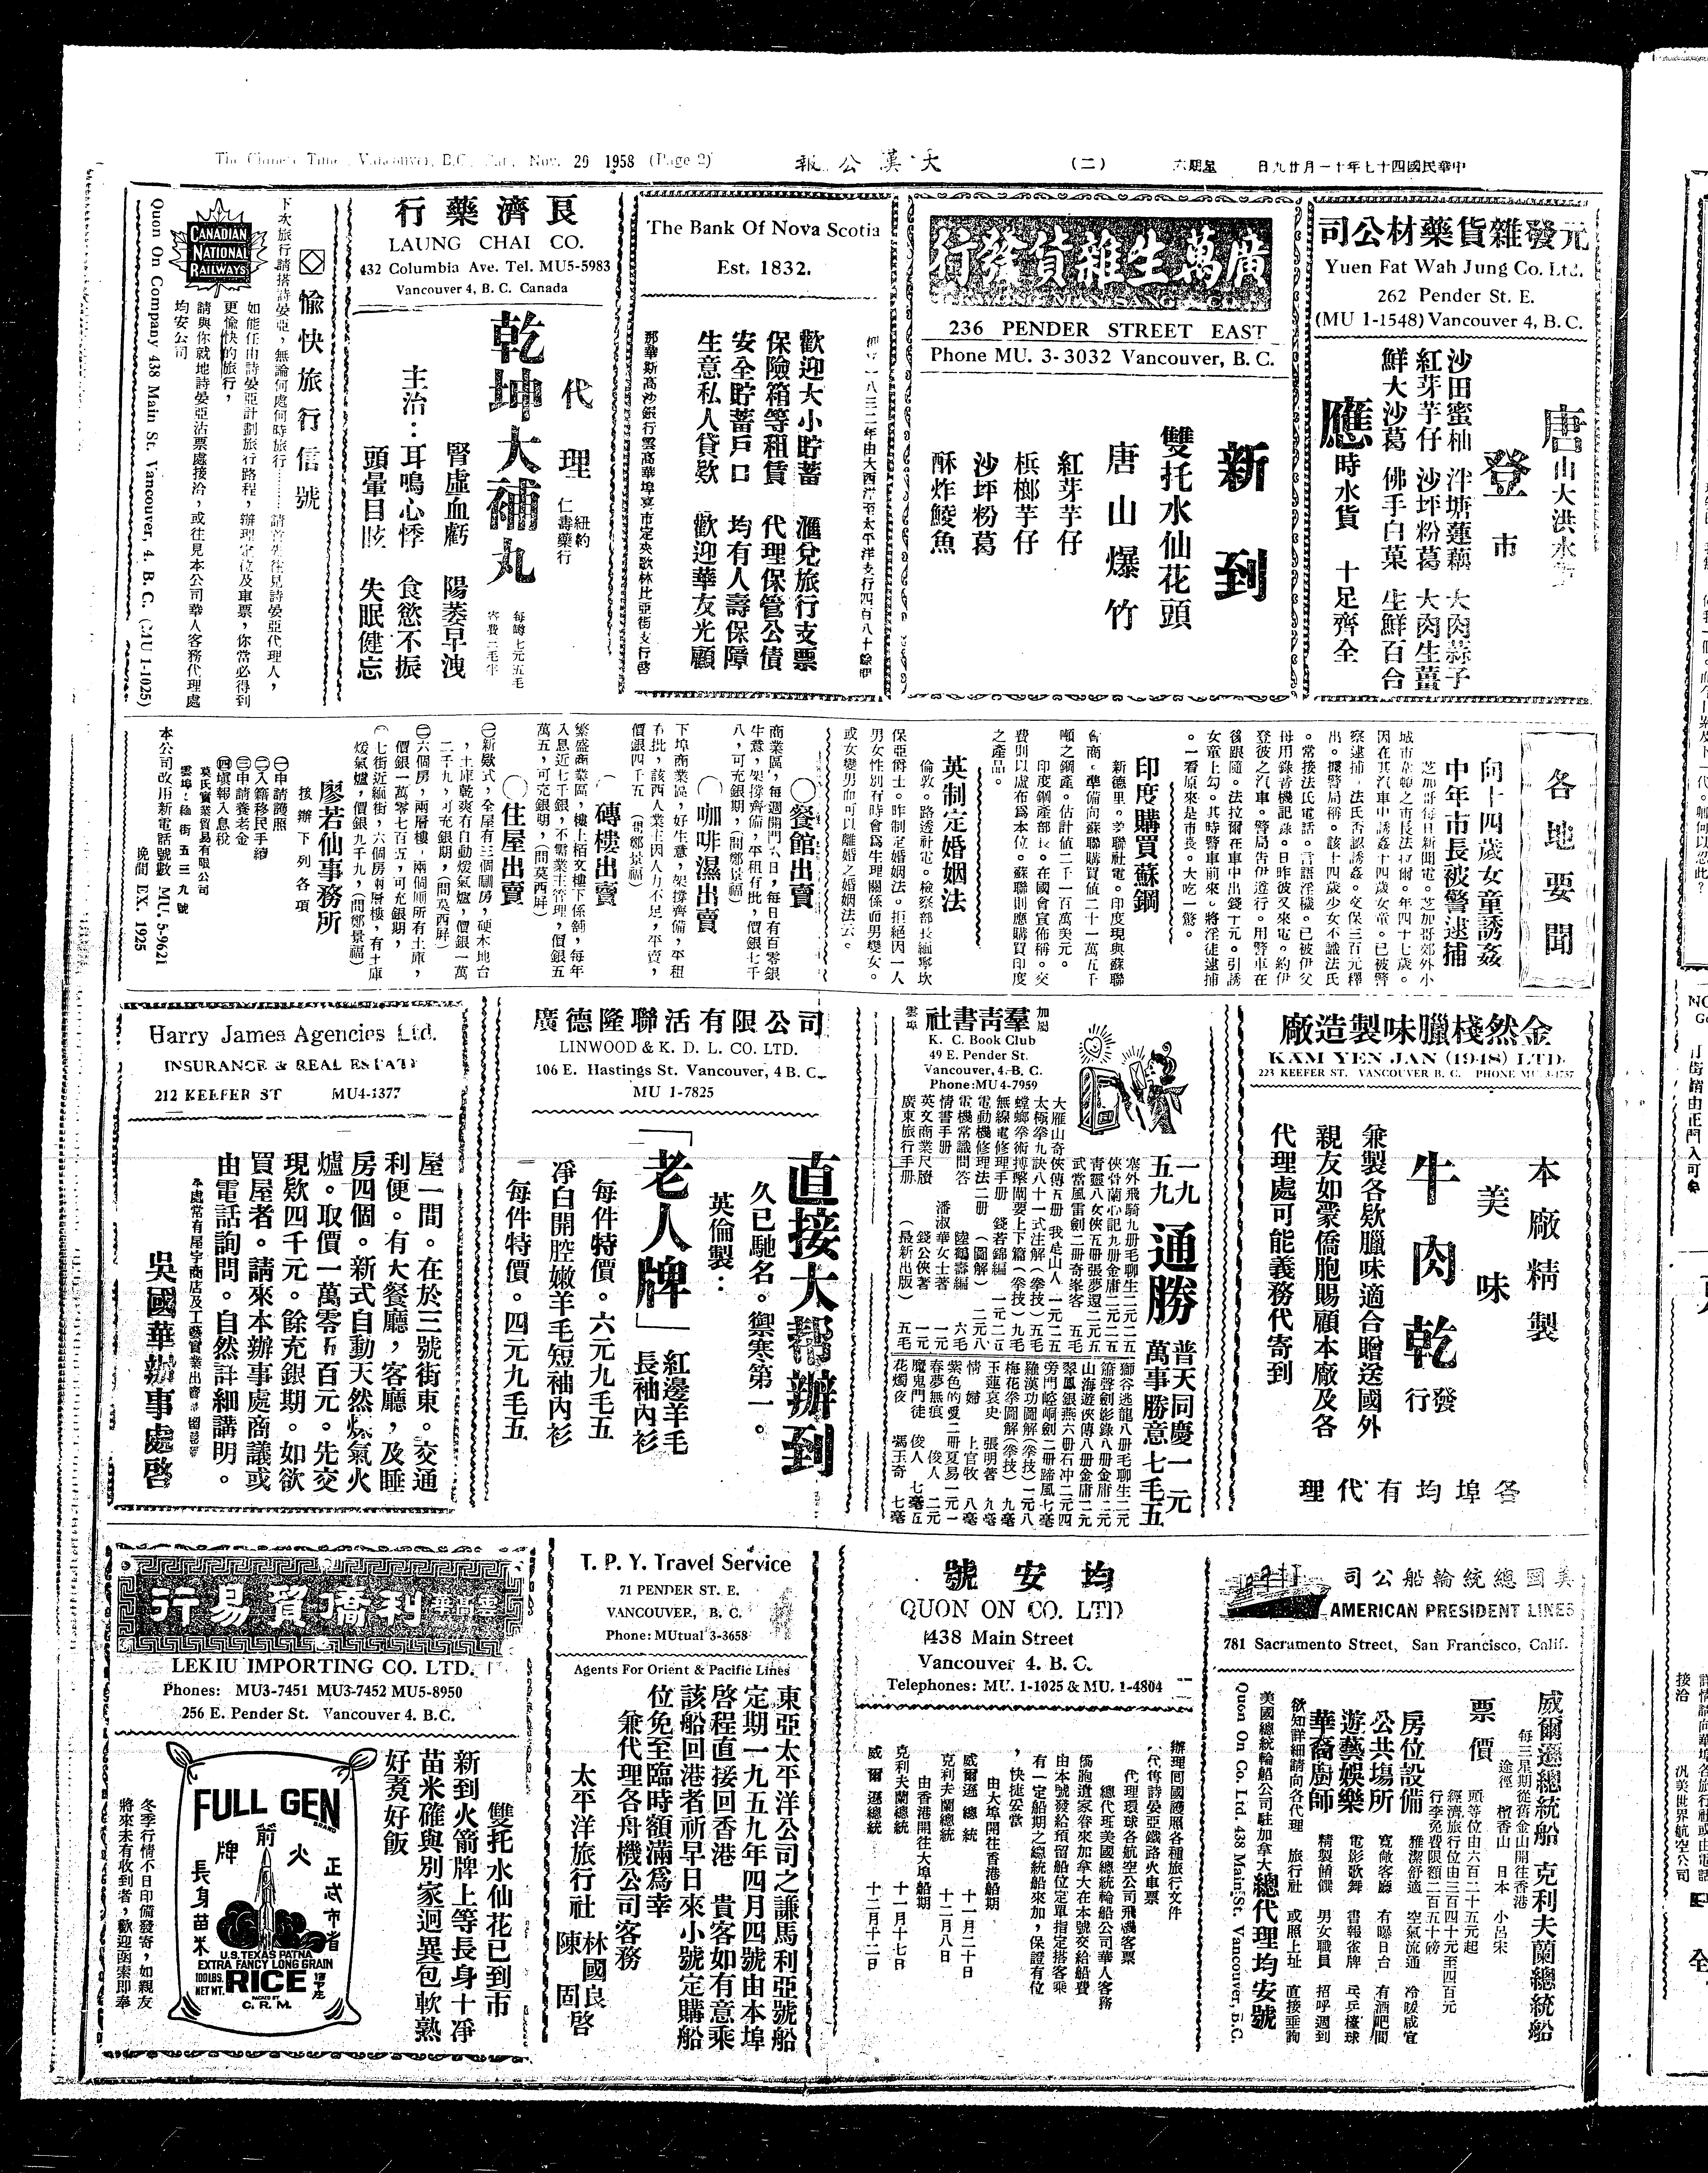 The Chinese Times, Vancouver, B.C. Sat., Nov. 29 1958 (Page 2)
大漢公報
(二)
星期六
中華民國四十七年十一月廿九日
元發雜貨藥材公司
Yuen Fat Wah Jung Co. Ltd.
262 Pender St. E.
(MU 1-1548) Vancouver 4, B. C.
唐山大洪水
登市
沙田蜜柚 泮塘蓮藕 大肉蒜子
紅芽芋仔 沙坪粉葛 大肉生薑
鮮大沙葛 佛手白菜 生鮮百合
應時水貨 十足齊全
廣萬生雜貨發行
236 PENDER STREET EAST
Phone MU. 3-3032 Vancouver, B. C.
新到
雙托水仙花頭
唐山爆竹
紅芽芋仔
檳榔芋仔
沙坪粉葛
酥炸鯪魚
The Bank Of Nova Scotia
Est. 1832.
一八三二年由大西洋至太平洋支行四百八十餘間
歡迎大小貯蓄 滙兌旅行支票
保險箱等租賃 代理保管公債
安全貯蓄戶口 均有人壽保障
生意私人貸欵 歡迎華友光顧
那華斯高沙銀行雲高華埠喜市定與歌林比亞街支行啓
良濟藥行
LAUNG CHAI CO.
432 Columbia Ave. Tel. MU5-5983
Vancouver 4, B. C. Canada
代理 紐約仁壽藥行
乾坤大補丸
每罇七元五毛
寄費二毛半
腎虛血虧 陽萎早洩
主治：耳鳴心悸 食慾不振
頭暈目眩 失眠健忘
愉快旅行信號
下次旅行請搭詩晏亞，無論何處何時旅行……請首先往見詩晏亞代理人，
如能任由詩晏亞計劃旅行路程，辦理定位及車票，你當必得到
更愉快的旅行，
請與你就地詩晏亞沽票處接洽，或往見本公司華人客務代理處
均安公司
CANADIAN NATIONAL RAILWAYS
Quon On Company 438 Main St. Vancouver, 4. B. C. (MU 1-1025)
各地要聞
向十四歲女童誘姦
中年市長被警逮捕
芝加哥每日新聞電。芝加哥郊外小
城市韋頓之市長法拉爾。年四十七歲。
因在其汽車中誘姦十四歲女童。已被警
察逮捕。法氏否認誘姦。交保三百元釋
出。據警局稱。該十四歲少女不識法氏
。常接法氏電話。言語淫穢。已被伊父
母用錄音機記錄。日昨彼又來電。約伊
登彼之汽車。警局告伊遵行。用警車在
後跟隨。法拉爾在車中出錢十元。引誘
女童上勾。其時警車前來。將淫徒逮捕
。一看原來是市長。大吃一驚。
印度購買蘇鋼
新德里。美聯社電。印度現與蘇聯
會商。準備向蘇聯購買値二十一萬五千
噸之鋼產。估計值二千一百萬美元。
印度鋼產部長。在國會宣佈稱。交
費則以盧布爲本位。蘇聯則應購買印度
之產品。
英制定婚姻法
倫敦。路透社電。檢察部長緬寧坎
保亞爵士。昨制定婚姻法。拒絕因一人
男女性別有時會爲生理關係而男變女。
或女變男而可以離婚之婚姻法云。
○餐館出賣
商業區，每週開門六日，每日有百零銀
生意，架撐齊備，平租有批，價銀七千
八，可充銀期，(問鄭景福)
○咖啡濕出賣
下埠商業區，好生意，架撐齊備，平租
有批，該西人業主因人力不足，平賣，
價銀四千五 (問鄭景福)
○磚樓出賣
繁盛商業區，樓上栢文樓下係舖，每年
入息近七千銀，不需業主管理，價銀五
萬五，可充銀期，(問莫西屏)
○住屋出賣
㊀新欵式，全屋有三個睡房，硬木地台
，土庫乾爽有自動煖氣爐，價銀一萬
二千九，可充銀期，(問莫西屏)
㊁六個房，兩層樓，兩個厠所有土庫，
價銀一萬零七百五，可充銀期，
七街近緬街，六個房兩層樓，有土庫
煖氣爐，價銀九千九，(問鄭景福)
廖若仙事務所
接辦下列各項
㊀申請護照
㊁入籍移民手續
㊂申請養老金
㊃塡報入息稅
莫氏實業貿易有限公司
雲埠緬街五三九號
本公司改用新電話號數 MU. 5-9621
晚間 EX. 1925
金然棧臘味製造廠
KAM YEN JAN (1948) LTD.
223 KEEFER ST. VANCOUVER B. C. PHONE MU 3-4757
本廠精製
美味
牛肉乾
發行
兼製各欵臘味適合贈送國外
親友如蒙僑胞賜顧本廠及各
代理處可能義務代寄到
各埠均有代理
加屬雲埠
羣靑書社
K. C. Book Club
49 E. Pender St.
Vancouver, 4. B. C.
Phone: MU 4-7959
一九五九 通勝 普天同慶一元
萬事勝意七毛五
塞外飛騎九册毛聊生二元二五
俠骨蘭心記九册金庸二元二五
靑靈八女俠五册張夢還二元五
武當風雷劍二册奇峯客 五毛
大雁山奇俠傳五册 我是山人 一元二五
太極拳九訣八十一式注解（拳技）五毛
螳螂拳術搏擊關要上下篇（拳技）九毛
無線電修理手册 錢若錦編 一元二五
電動機修理法二册 （圖解） 二元八
電機常識問答 陸鶴壽編 六毛
情書手册 潘淑華女士著 一元
英文商業尺牘 錢公俠著 一元
廣東旅行手册 （最新出版） 五毛
獅谷逃龍八册毛聊生二元
簫聲劍影錄八册金庸二元
山海遊俠傳八册金庸二元
翠鳳銀燕六册石冲二元四
旁門崆峒劍二册蹄風七毫
羅漢功圖解（拳技）一元八
梅花拳圖解（拳技） 九毫
玉蓮哀史 張明著 九毫
情婦 上官牧 八毫
紫色的愛二册夏易一元一
春夢無痕 俊人 二元
魔鬼門徒 俊人 七毫五
花燭夜 馮玉奇 七毫
廣德隆聯活有限公司
LINWOOD & K. D. L. CO. LTD.
106 E. Hastings St. Vancouver, 4 B. C.
MU 1-7825
直接大帮辦到
久已馳名。禦寒第一。
英倫製：
「老人牌」紅邊羊毛長袖內衫
每件特價。六元九毛五
凈白開腔嫩羊毛短袖內衫
每件特價。四元九毛五
Harry James Agencies Ltd.
INSURANCE & REAL ESTATE
212 KEEFER ST MU4-1377
屋一間。在於三號街東。交通
利便。有大餐廳，客廳，及睡
房四個。新式自動天然煤氣火
爐。取價一萬零五百元。先交
現欵四千元。餘充銀期。如欲
買屋者。請來本辦事處商議或
由電話詢問。自然詳細講明。
吳國華辦事處啓
美國總統輪船公司
AMERICAN PRESIDENT LINES
781 Sacramento Street, San Francisco, Calif.
威爾遜總統船 克利夫蘭總統船
每三星期從舊金山開往香港
途徑 檀香山 日本 小呂宋
票價
頭等位由六百二十五元起
經濟旅行位由三百四十元至四百元
行李免費限額二百五十磅
房位設備 雅潔舒適 空氣流通 冷暖咸宜
公共塲所 寬敞客廳 有曝日台 有酒吧間
遊藝娛樂 電影歌舞 書報雀牌 乓乒檯球
華裔廚師 精製餚饌 男女職員 招呼週到
欲知詳細請向各代理 旅行社 或照上址 直接垂詢
美國總統輪船公司駐加拿大總代理均安號
Quon On Co. Ltd. 438 Main St. Vancouver, B.C.
均安號
QUON ON CO. LTD
438 Main Street
Vancouver 4. B. C.
Telephones: MU. 1-1025 & MU. 1-4804
辦理囘國護照各種旅行文件
代售詩晏亞鐵路火車票
代理環球各航空公司飛機客票
總代理美國總統輪船公司華人客務
僑胞道家眷來加拿大在本號交給船費
由本號發給預留船位定單指定搭客乘
有一定船期之總統船來加，保證有位
，快捷妥當
由大埠開往香港船期
威爾遜總統 十一月二十日
克利夫蘭總統 十二月八日
由香港開往大埠船期
克利夫蘭總統 十一月十七日
威爾遜總統 十二月十二日
T. P. Y. Travel Service
71 PENDER ST. E.
VANCOUVER, B. C.
Phone: MUtual 3-3658
Agents For Orient & Pacific Lines
東亞太平洋公司之謙馬利亞號船
定期一九五九年四月四號由本埠
啓程直接回香港 貴客如有意乘
該船回港者祈早日來小號定購船
位免至臨時額滿爲幸
兼代理各舟機公司客務
太平洋旅行社 林國良 陳固啓
雲高華利僑貿易行
LEKIU IMPORTING CO. LTD.
Phones: MU3-7451 MU3-7452 MU5-8950
256 E. Pender St. Vancouver 4. B.C.
雙托水仙花已到市
新到火箭牌上等長身十凈
苗米確與別家迥異包軟熟
好賣好飯
FULL GEN
BRAND
火箭牌
正莊市省
長身苗米
U.S. TEXAS PATNA
EXTRA FANCY LONG GRAIN
100 LBS. NET WT. RICE
PACKED BY
C. R. M.
冬季行情不日印備發寄，如親友
將來未有收到者，歡迎函索即奉